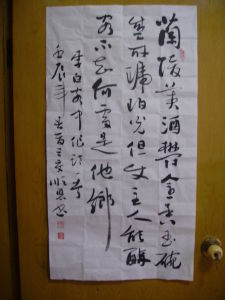 蘭陵美酒鬱金香玉碗
盛來琥珀光但使主人能醉
客不知何處是他鄉
李白客中作詩一首
壬辰年